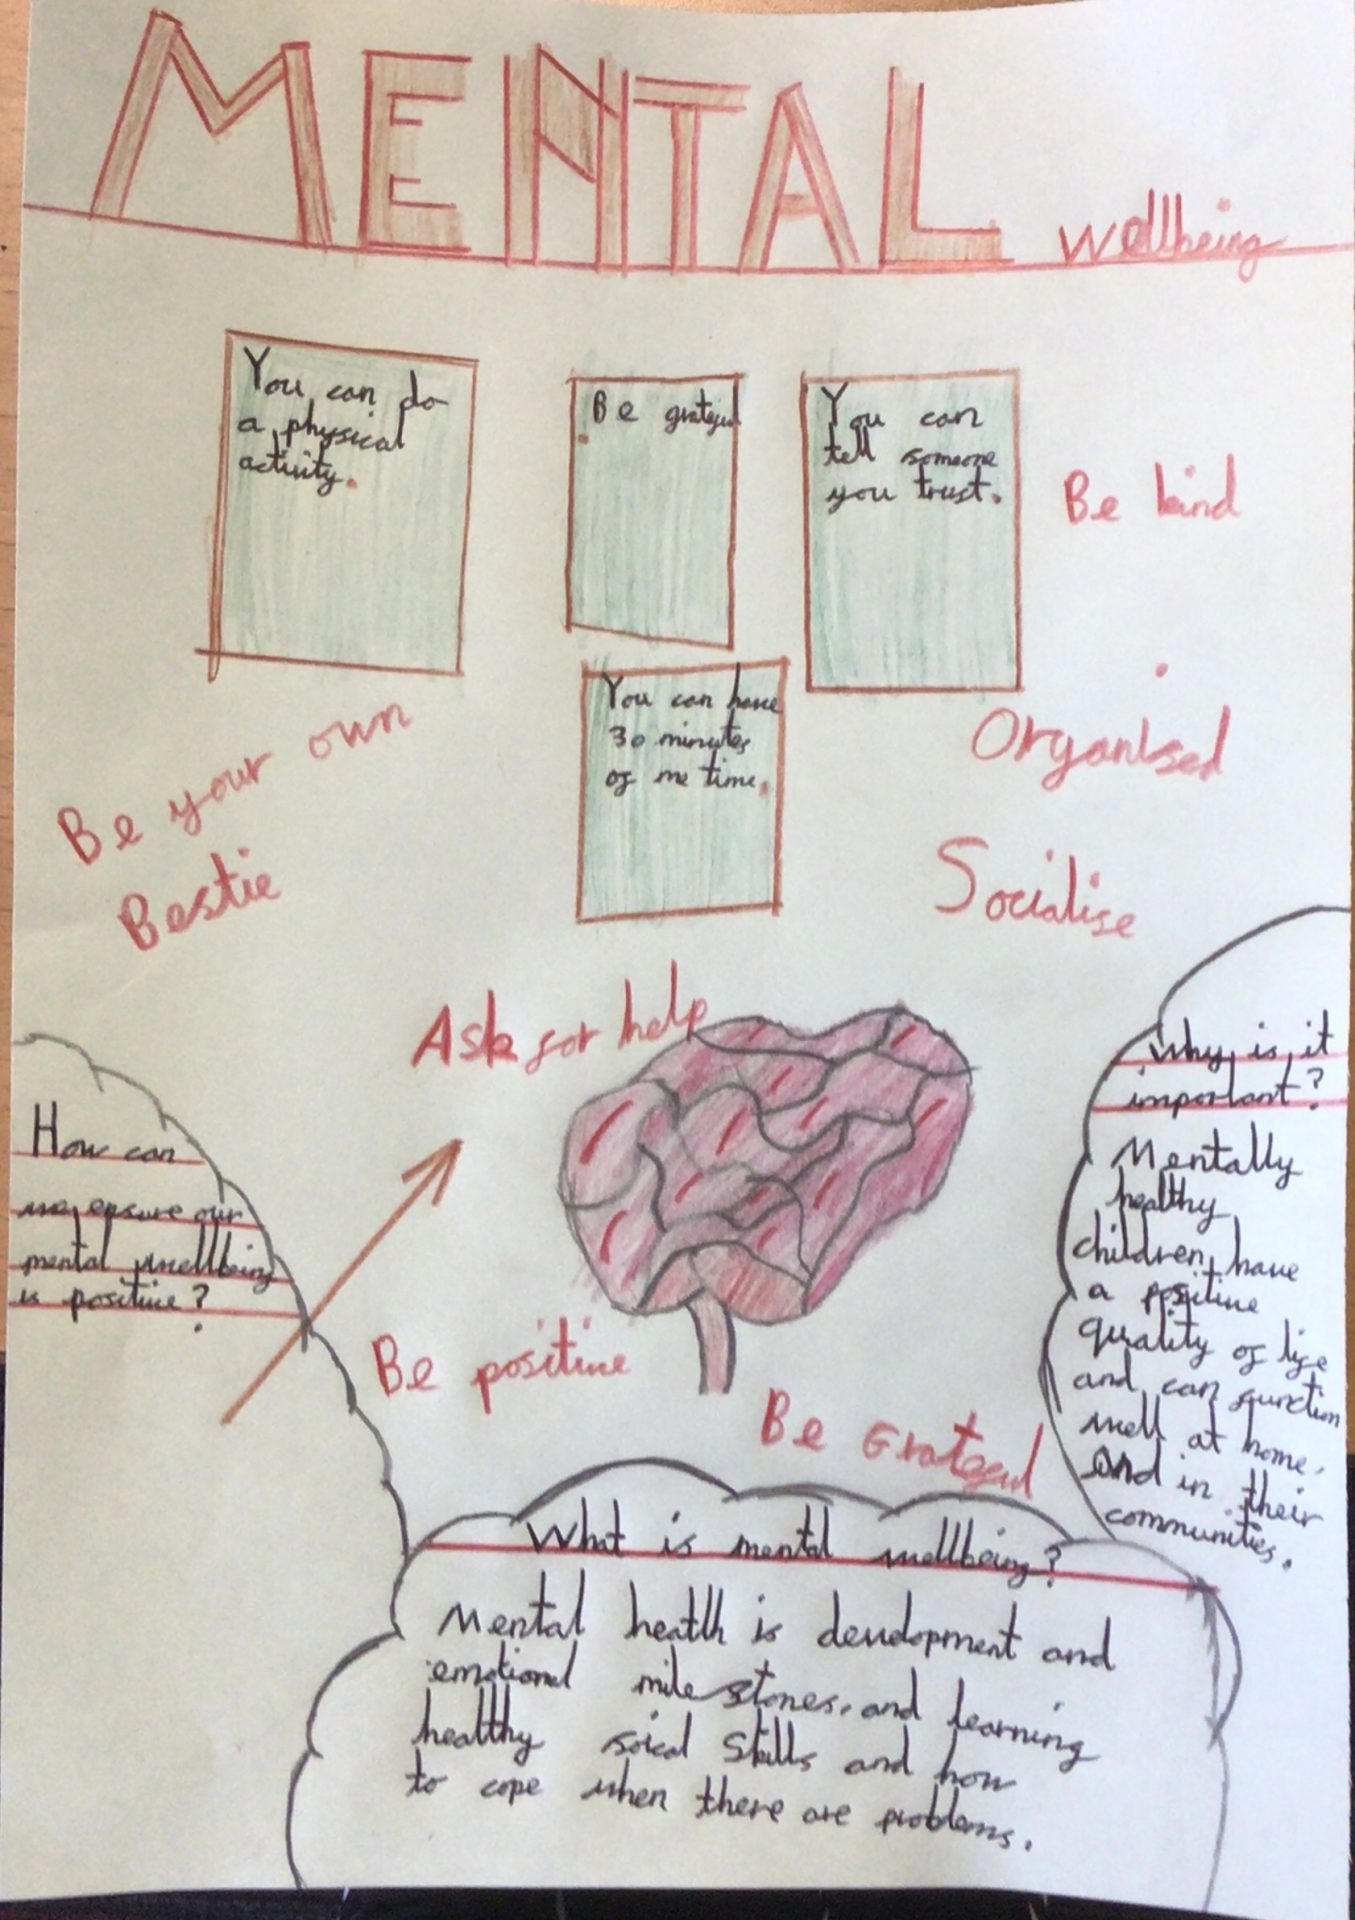 MENTAL wellbeing
You can do
a physical
activity.
Be grateful
.
You can
tell someone
you trust.
Be kind
You can have
30 minutes
of me time.
Be your own
Bestie
Organised
Socialise
Ask for help
How can
we ensure our
mental wellbeing
is positive?
Why is it
important?
Mentally
healthy
children have
a positive
quality of life
and can function
well at home,
and in their
communities.
Be positive
Be Grateful
What is mental wellbeing?
Mental heatlh is development and
emotional milestones, and learning
healthy soical skills and how
to cope when there are problems.